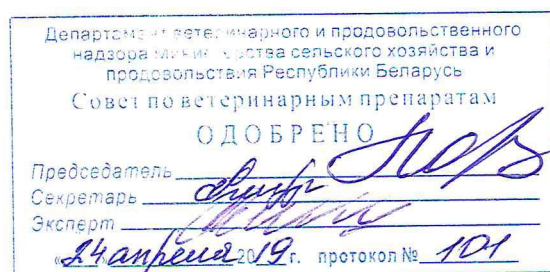 Департамент ветеринарного и продовольственного
надзора Министерства сельского хозяйства и
продовольствия Республики Беларусь
Совет по ветеринарным препаратам
ОДОБРЕНО
Председатель
Секретарь
Эксперт
«24» апреля 2019 г. протокол № 101